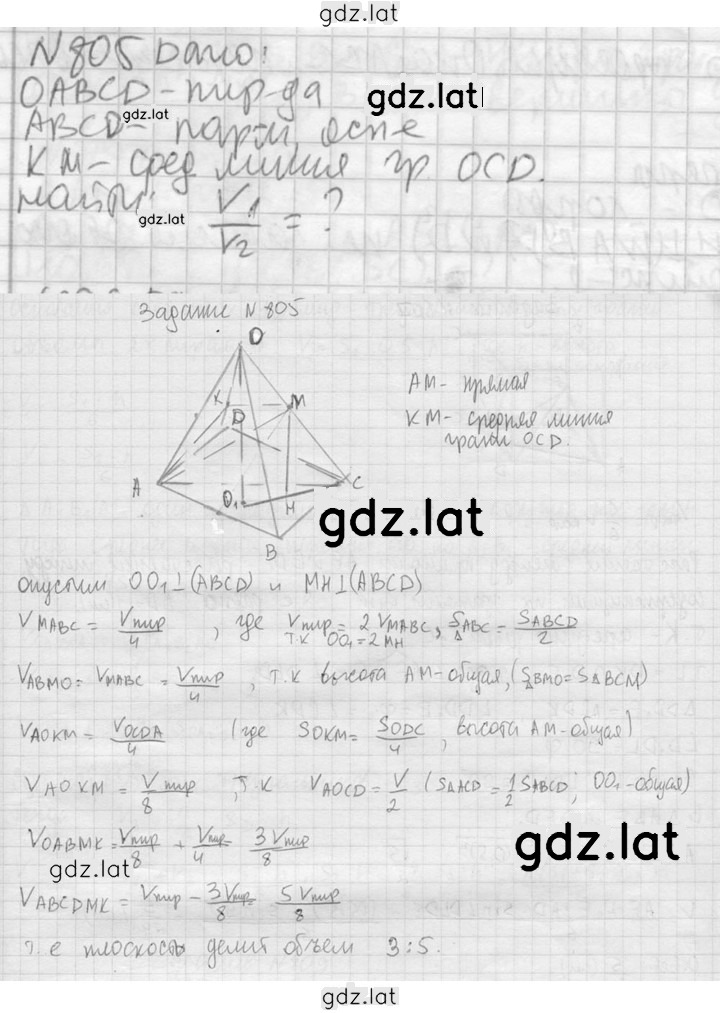 gdz.lat
N 805 Дано:
OABCD - пир-да
gdz.lat
gdz.lat
ABCD - пар-м, осн-е
KM - сред линия гр OCD.
найти:
gdz.lat
V1/V2 = ?
Задание N 805
O
K
M
D
A
O1
H
C
B
AM - прямая
KM - средняя линия
грани OCD.
gdz.lat
опустим OO1⊥(ABCD) и MH⊥(ABCD)
VMABC = Vпир/4, где Vпир = 2VMABC, S△ABC = SABCD/2
т.к OO1 = 2MH
VABMO = VMABC = Vпир/4, т.к высота AM-общая, (S△BMO = S△BCM)
VAOKM = VOCDA/4 (где SOKM = SODC/4, высота AM-общая)
VAOKM = Vпир/8, т.к VAOCD = V/2 (S△ACD = 1/2 SABCD, OO1-общая)
VOABMK = Vпир/8 + Vпир/4 = 3Vпир/8
gdz.lat
gdz.lat
VABCDMK = Vпир - 3Vпир/8 = 5Vпир/8
т.е плоскость делит объем 3:5.
gdz.lat